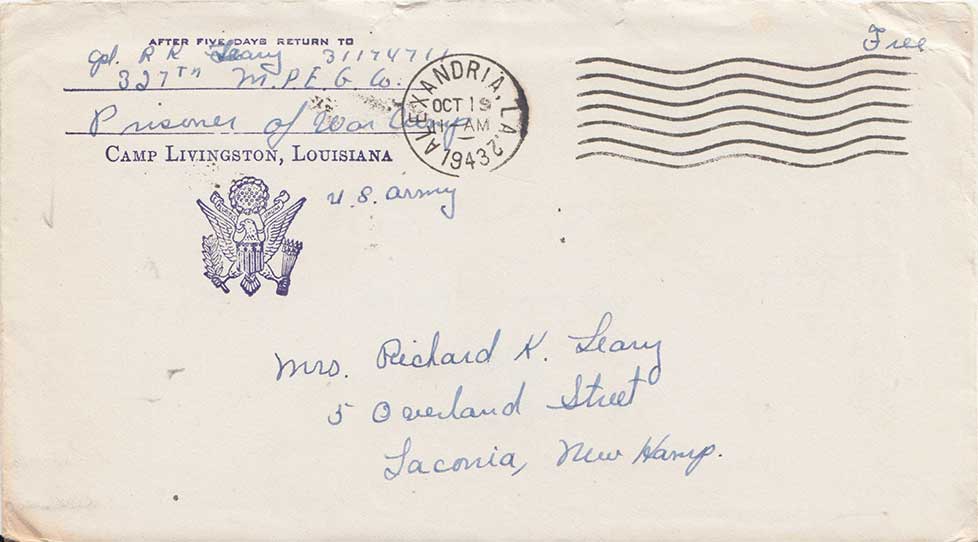 AFTER FIVE DAYS RETURN TO
Free
Cpl. R K Leary 31174711
327th M.P.E.G Co.
Prisoner of War Camp
CAMP LIVINGSTON, LOUISIANA
ALEXANDRIA, LA. 2
OCT 19
11 AM
1943
U.S. Army
Mrs. Richard K. Leary
5 Overland Street
Laconia, New Hamp.